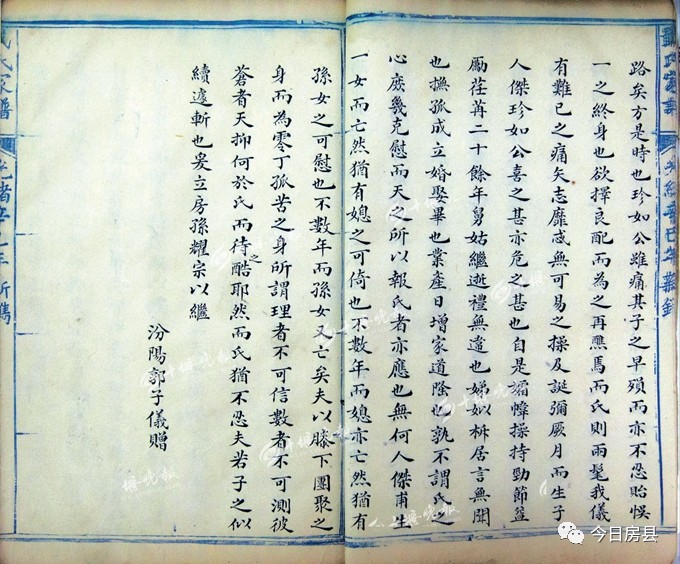 路矣方是時也珍如公雖痛其子之早殞而亦不忍貽悞
一之終身也欲擇良配而為之再醮焉而氏則兩髦我儀
有難已之痛矢志靡慝無可易之操及誕彌厥月而生子
人傑珍如公喜之甚亦危之甚也自是孀幃操持勁節益
勵荏苒二十餘年舅姑繼逝禮無違也娣姒析居言無間
也撫孤成立婚娶畢也業產日增家道隆也孰不謂氏之
心庶幾克慰而天之所以報氏者亦應也無何人傑甫生
一女而亡然猶有媳之可倚也不數年而媳亦亡然猶有
孫女之可慰也不數年而孫女又亡矣夫以膝下團聚之
身而為零丁孤苦之身所謂理者不可信數者不可測彼
蒼者天抑何於氏而待之酷耶然而氏猶不忍夫若子之似
續遽斬也爰立房孫耀宗以繼
汾陽郭子儀贈
氏家譜
今日房县